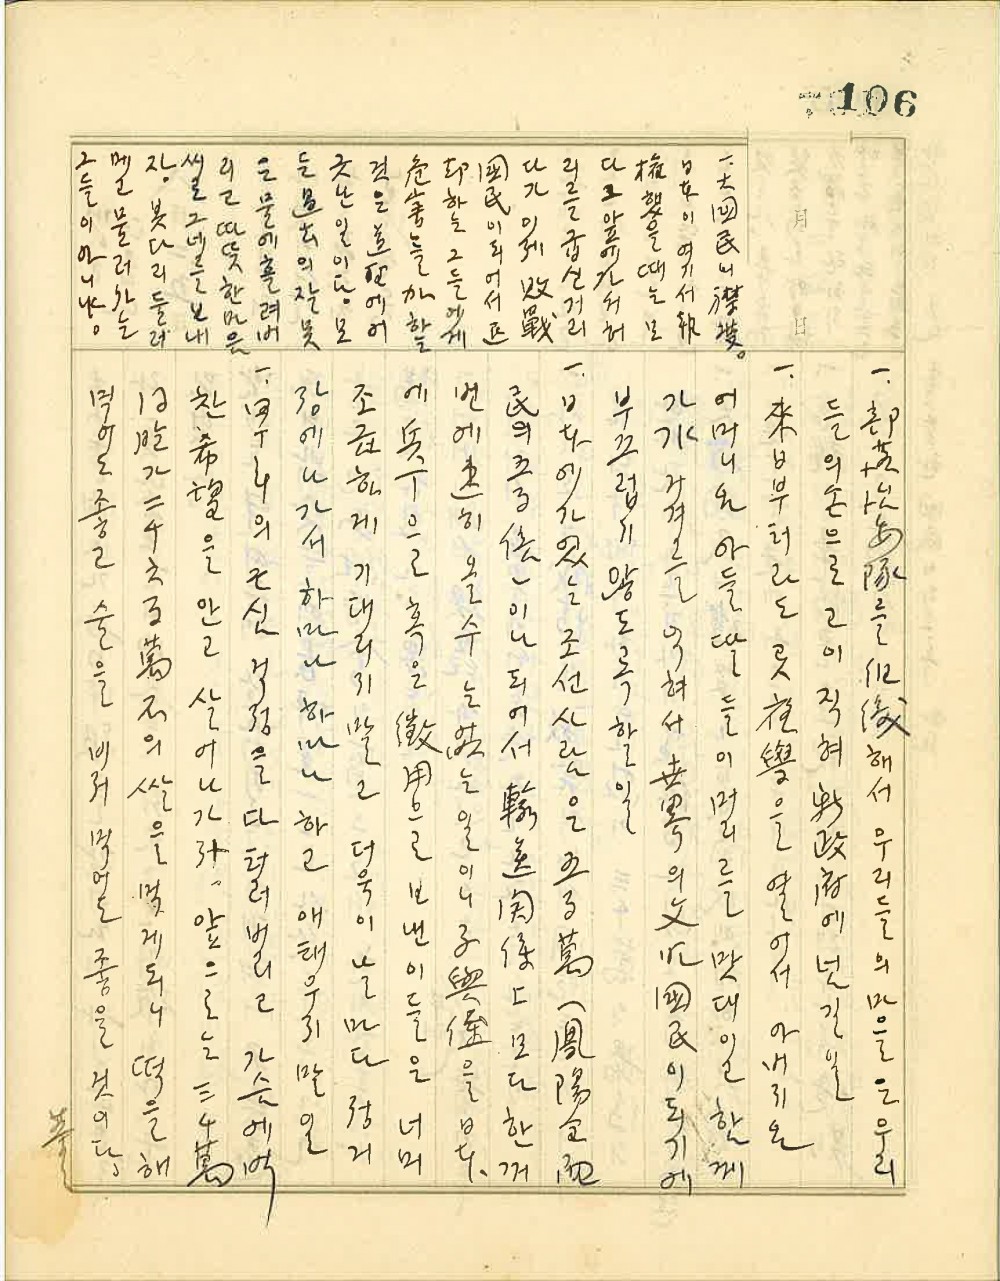 106
月
日
一. 大國民의 襟度。
日本이 여기서 報
權했을 때는 모
다 그 앞에 가서 허
리를 굽신거리
다가 이제 敗戰
國民이 되어서 正
却하는 그들에게
危害를 加할
것은 못난
긋난 일이다. 모
든 過去의 잘못
은 물에 흘려버
리고 따뜻한 마음
씨로 그네를 보내
장 봇다리 둘러
멜고 물러가는
그들이 아니냐。
一. 部落 保安隊를 組織해서 우리들의 마을은 우리
들의 손으로 고이 직혀 新政府에 넌길 일
一. 來日부터라도 곳 夜學을 열어서 아버지와
어머니와 아들 딸들이 머리를 맛대이고 함께
가갸 거겨를 익혀서 世界의 文化國民이 되기에
부끄럽지 않도록 할 일
一. 日本에 가 있는 조선사람은 五百萬 (鳳陽全面
民의 五百倍)이나 되어서 輸送関係上 모다 한꺼
번에 速히 올 수는 없는 일이니 子與侄을 日本
에 兵丁으로 혹은 徵用으로 보낸 이들은 너머
조급하게 기대리지 말고 더욱이 날마다 정거
장에 나가서 하마나 하마나 하고 애태우지 말 일
一. 甲子의 근심 걱정을 다 털어버리고 가슴에 벅
찬 希望을 안고 살어나가자。 앞으로는 三千萬
同胞가 二千六百萬石의 쌀을 먹게되니 떡을 해
먹어도 좋고 술을 비저 먹어도 좋을 것이다。